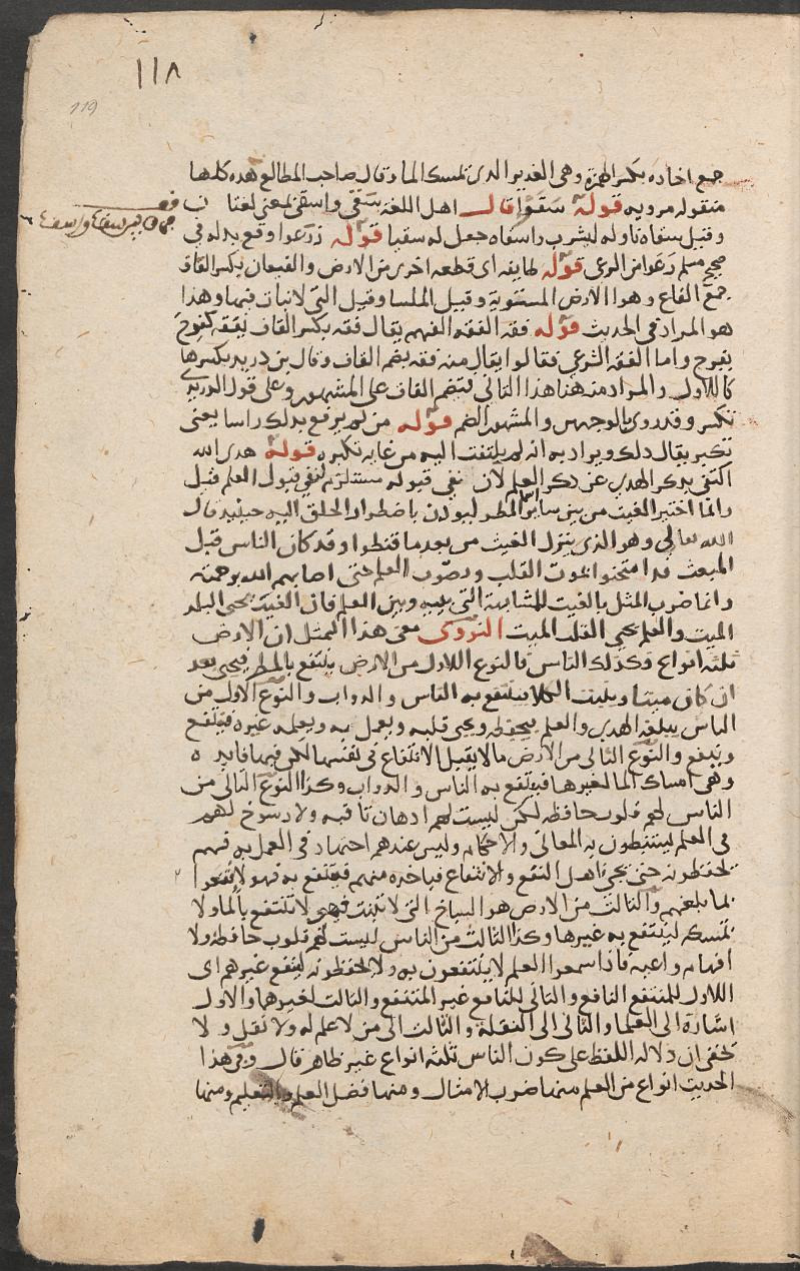 ١١٨
119
جمع اخاذه بكسر الهمزة وهي الغدير الذي تمسك الما وقال صاحب المطالع هذه كلها
منقوله مرويه قوله سقوا قال اهل اللغة سقى واسقى بمعنى لغتا ن
وقيل سقاه ناوله ليشرب واسقاه جعل له سقيا قوله زرعوا وقع بدله في
صحيح مسلم رعوا من الرعي قوله طايفه اي قطعه اخرى من الارض والقيعان بكسر القاف
جمع القاع وهو الارض المستوية وقيل الملسا وقيل التي لا نبات فيها وهذا
هو المراد في الحديث قوله فقه الفقه الفهم يقال فقه بكسر القاف يفقه كفرح
يفرح واما الفقه الشرعي فقالوا يقال منه فقه بضم القاف وقال بن دريد بكسرها
كالاول والمراد منه هنا هذا الثاني فتضم القاف على المشهور وعلى قول الدريدي
تكسر وقد روي بالوجهين والمشهور الضم قوله من لم يرفع بذلك راسا يعني
تكبر يقال ذلك ويراد به انه لم يلتفت اليه من غايه تكبره قوله هدى الله
اكتفى بذكر الهدى عن ذكر العلم لان نفي قبوله مستلزم لنفي قبول العلم قيل
وانما اختير الغيث من بين ساير المطر ليوذن باضطرار الخلق اليه حينيذ قال
الله تعالى وهو الذي ينزل الغيث من بعد ما قنطوا وقد كان الناس قبل
المبعث قد امتحنوا بموت القلب ونضوب العلم حتى اصابهم الله برحمته
وانما ضرب المثل بالغيث للمشابهة التي بينه وبين العلم فان الغيث يحيي البلد
الميت والعلم يحيي القلب الميت النووي معنى هذا التمثيل ان الارض
ثلثه انواع وكذلك الناس فالنوع الاول من الارض ينتفع بالمطر فيحيى بعد
ان كان ميتا وينبت الكلا فينتفع به الناس والدواب والنوع الاول من
الناس يبلغه الهدى والعلم فيحفظه ويحيى قلبه ويعمل به ويعلمه غيره فينتفع
وينفع والنوع الثاني من الارض ما لا يقبل الانتفاع في نفسها لكن فيها فايد ه
وهي امساك الما لغيرها فينتفع به الناس والدواب وكذا النوع الثاني من
الناس لهم قلوب حافظه لكن ليست لهم اذهان ثاقبه ولا رسوخ لهم
في العلم يستنبطون به المعاني والاحكام وليس عندهم اجتهاد في العمل به فهم
يحفظونه حتى يجي اهل النفع والانتفاع فياخذه منهم فينتفع به فهولا نفعوا
بما بلغهم والثالث من الارض هو السباخ التي لا تنبت فهي لا تنتفع بالما ولا
تمسكه لينتفع به غيرها وكذا الثالث من الناس ليست لهم قلوب حافظه ولا
افهام واعيه فاذا سمعوا العلم لا ينتفعون به ولا يحفظونه لنفع غيرهم اي
الاول للمنتفع النافع والثاني للنافع غير المنتفع والثالث لغيرهما والاول
اشارة الى العلما والثاني الى النقلة والثالث الى من لا علم له ولا نقل ولا
يخفى ان دلاله اللفظ على كون الناس ثلثه انواع غير ظاهر قال وفي هذا
الحديث انواع من العلم منها ضرب الامثال ومنها فضل العلم والتعليم ومنها